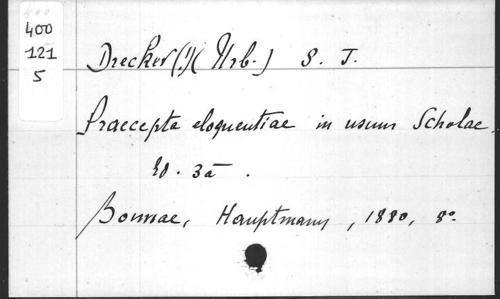 400
121
5
Drecker (!) (Urb.) S. J.
Praecepta eloquentiae in usum Scholae.
Ed. 3a.
Bonnae, Hauptmann, 1880, 8°.